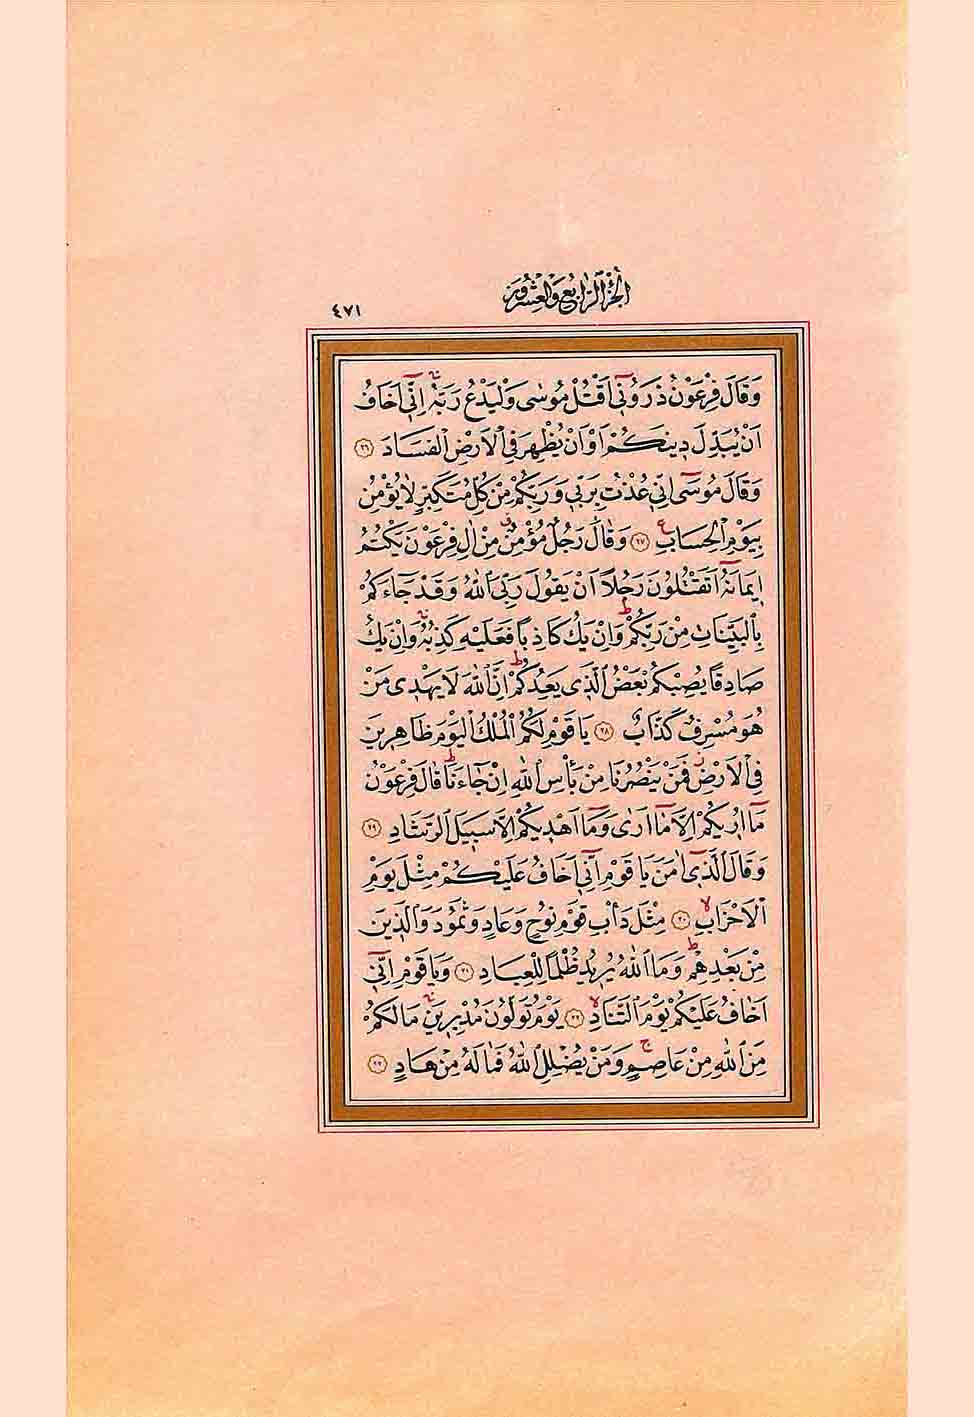 الجزء الرابع والعشرون
٤٧١
وَقَالَ فِرْعَوْنُ ذَرُونٓي اَقْتُلْ مُوسٰى وَلْيَدْعُ رَبَّهُۚ اِنّٓي اَخَافُ
اَنْ يُبَدِّلَ دٖينَكُمْ اَوْ اَنْ يُظْهِرَ فِي الْاَرْضِ الْفَسَادَ ﴿٢٦﴾
وَقَالَ مُوسٰٓى اِنّٖي عُذْتُ بِرَبّٖي وَرَبِّكُمْ مِنْ كُلِّ مُتَكَبِّرٍ لَا يُؤْمِنُ
بِيَوْمِ الْحِسَابِ ع ﴿٢٧﴾ وَقَالَ رَجُلٌ مُؤْمِنٌ مِنْ اٰلِ فِرْعَوْنَ يَكْتُمُ
اٖيمَانَهُٓ اَتَقْتُلُونَ رَجُلًا اَنْ يَقُولَ رَبِّيَ اللّٰهُ وَقَدْ جَٓاءَكُمْ
بِالْبَيِّنَاتِ مِنْ رَبِّكُمْؕ وَاِنْ يَكُ كَاذِبًا فَعَلَيْهِ كَذِبُهُۚ وَاِنْ يَكُ
صَادِقًا يُصِبْكُمْ بَعْضُ الَّذٖي يَعِدُكُمْؕ اِنَّ اللّٰهَ لَا يَهْدٖي مَنْ
هُوَ مُسْرِفٌ كَذَّابٌ ﴿٢٨﴾ يَا قَوْمِ لَكُمُ الْمُلْكُ الْيَوْمَ ظَاهِرٖينَ
فِي الْاَرْضِؗ فَمَنْ يَنْصُرُنَا مِنْ بَأْسِ اللّٰهِ اِنْ جَٓاءَنَاؕ قَالَ فِرْعَوْنُ
مَٓا اُرٖيكُمْ اِلَّا مَٓا اَرٰى وَمَٓا اَهْدٖيكُمْ اِلَّا سَبٖيلَ الرَّشَادِ ﴿٢٩﴾
وَقَالَ الَّذٖٓي اٰمَنَ يَا قَوْمِ اِنّٖٓي اَخَافُ عَلَيْكُمْ مِثْلَ يَوْمِ
الْاَحْزَابِۙ ﴿٣٠﴾ مِثْلَ دَأْبِ قَوْمِ نُوحٍ وَعَادٍ وَثَمُودَ وَالَّذٖينَ
مِنْ بَعْدِهِمْؕ وَمَا اللّٰهُ يُرٖيدُ ظُلْمًا لِلْعِبَادِ ﴿٣١﴾ وَيَا قَوْمِ اِنّٖٓي
اَخَافُ عَلَيْكُمْ يَوْمَ التَّنَادِۙ ﴿٣٢﴾ يَوْمَ تُوَلُّونَ مُدْبِرٖينَۚ مَا لَكُمْ
مِنَ اللّٰهِ مِنْ عَاصِمٍۚ وَمَنْ يُضْلِلِ اللّٰهُ فَمَا لَهُ مِنْ هَادٍ ﴿٣٣﴾